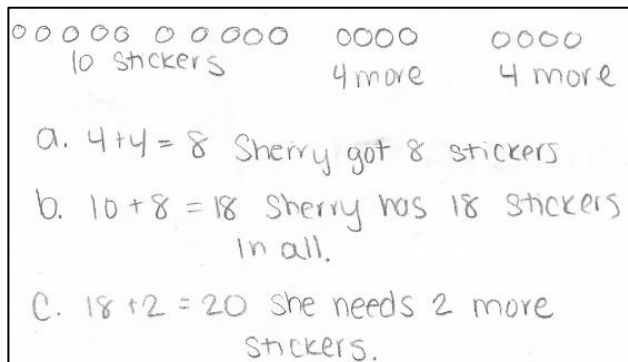 10 stickers 4 more 4 more
a. 4+4 = 8 Sherry got 8 stickers
b. 10+8 = 18 Sherry has 18 stickers
In all.
C. 18+2 = 20 She needs 2 more
stickers.